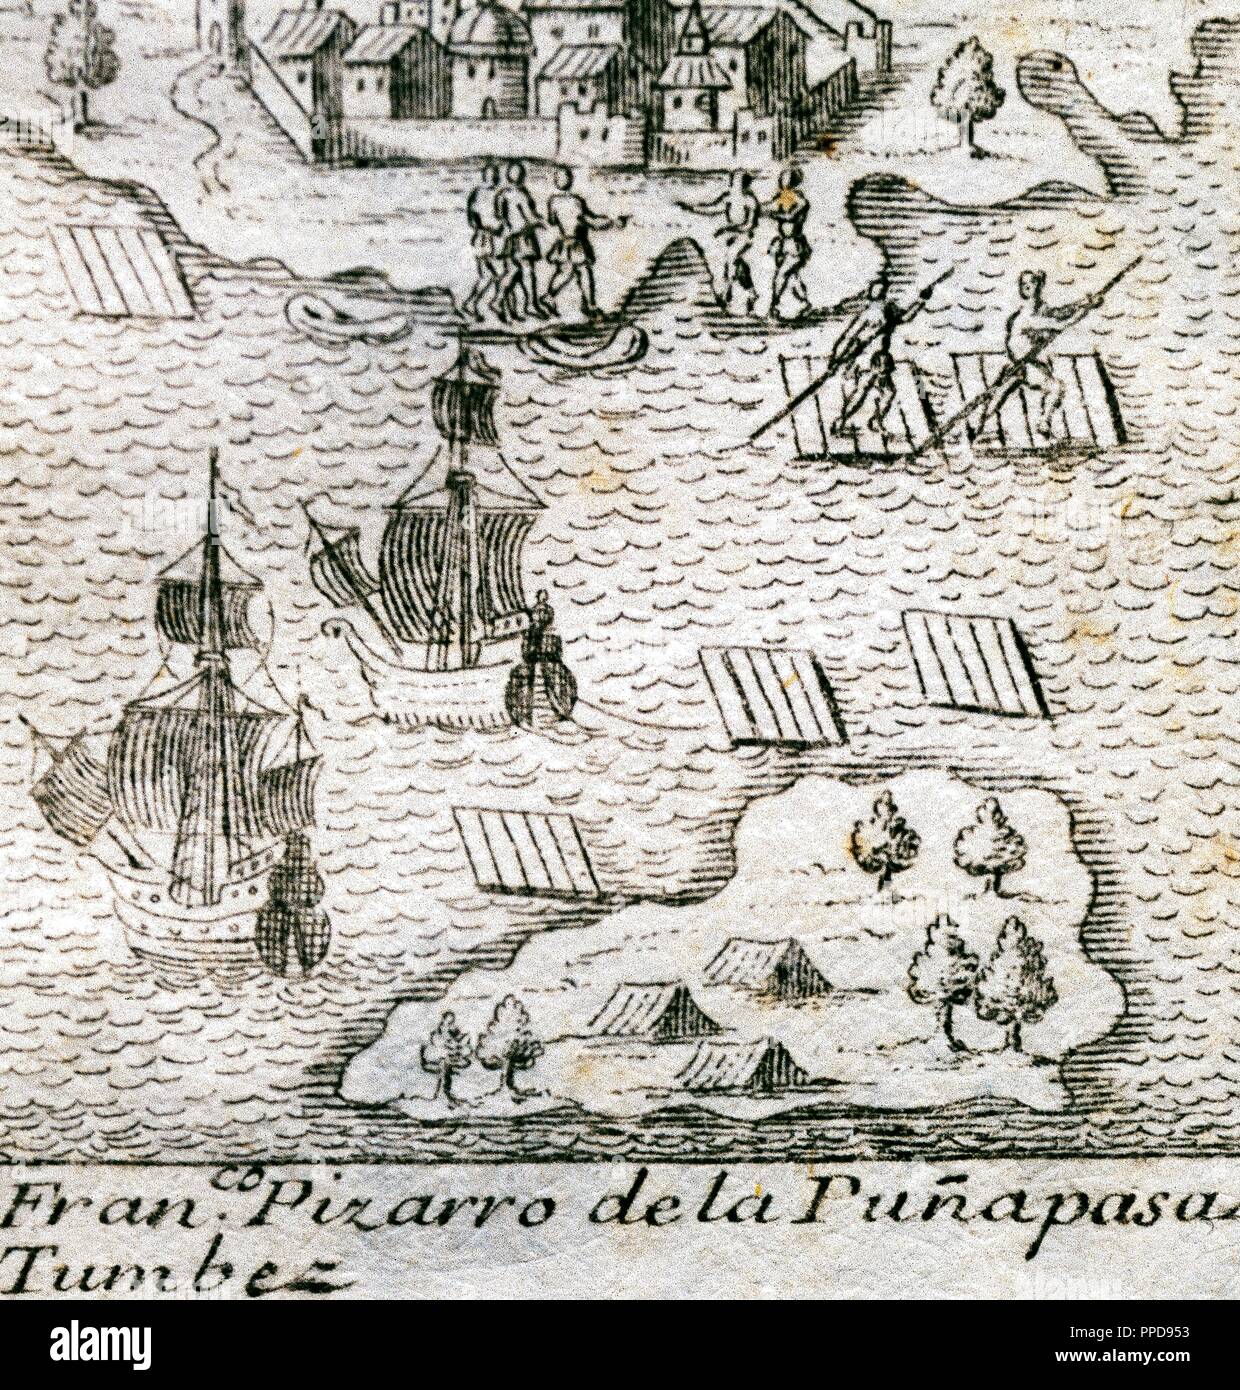 Fran.co Pizarro de la Puña pasa a
Tumbez
alamy
Image ID: PPD953
www.alamy.com